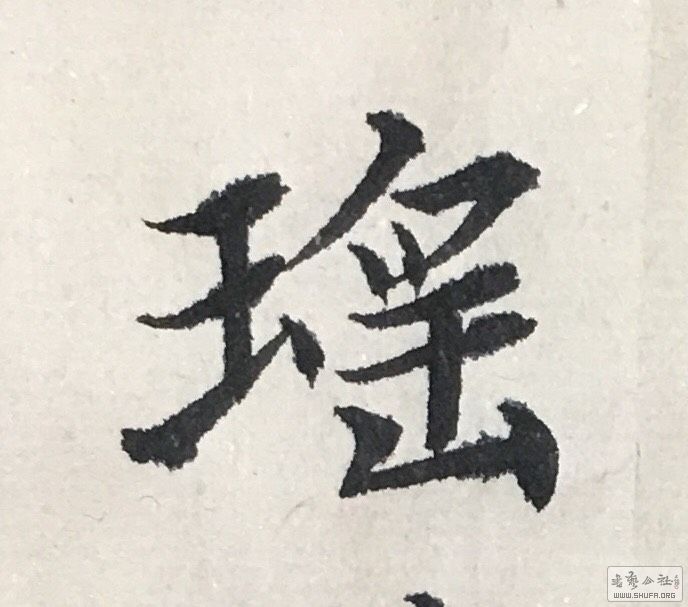 瑤
書藝公社
WWW.SHUFA.ORG